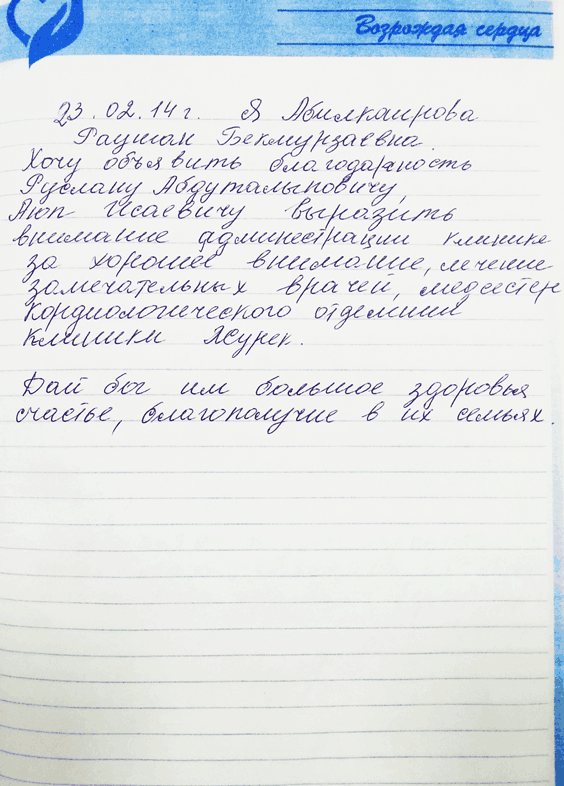 Возрождая сердца
23.02.14 г. Я Абилкаирова
Раушан Бекмурзаевна.
Хочу объявить благодарность
Руслану Абдуталыповичу,
Аюп Исаевичу выразить
внимание администрации клинике
за хорошее внимание, лечение
замечательных врачей, медсестер
Кордиологического отделший
Клиники Жүрек.
Дай бог им большое здоровья
счастье, благополучие в их семьях.